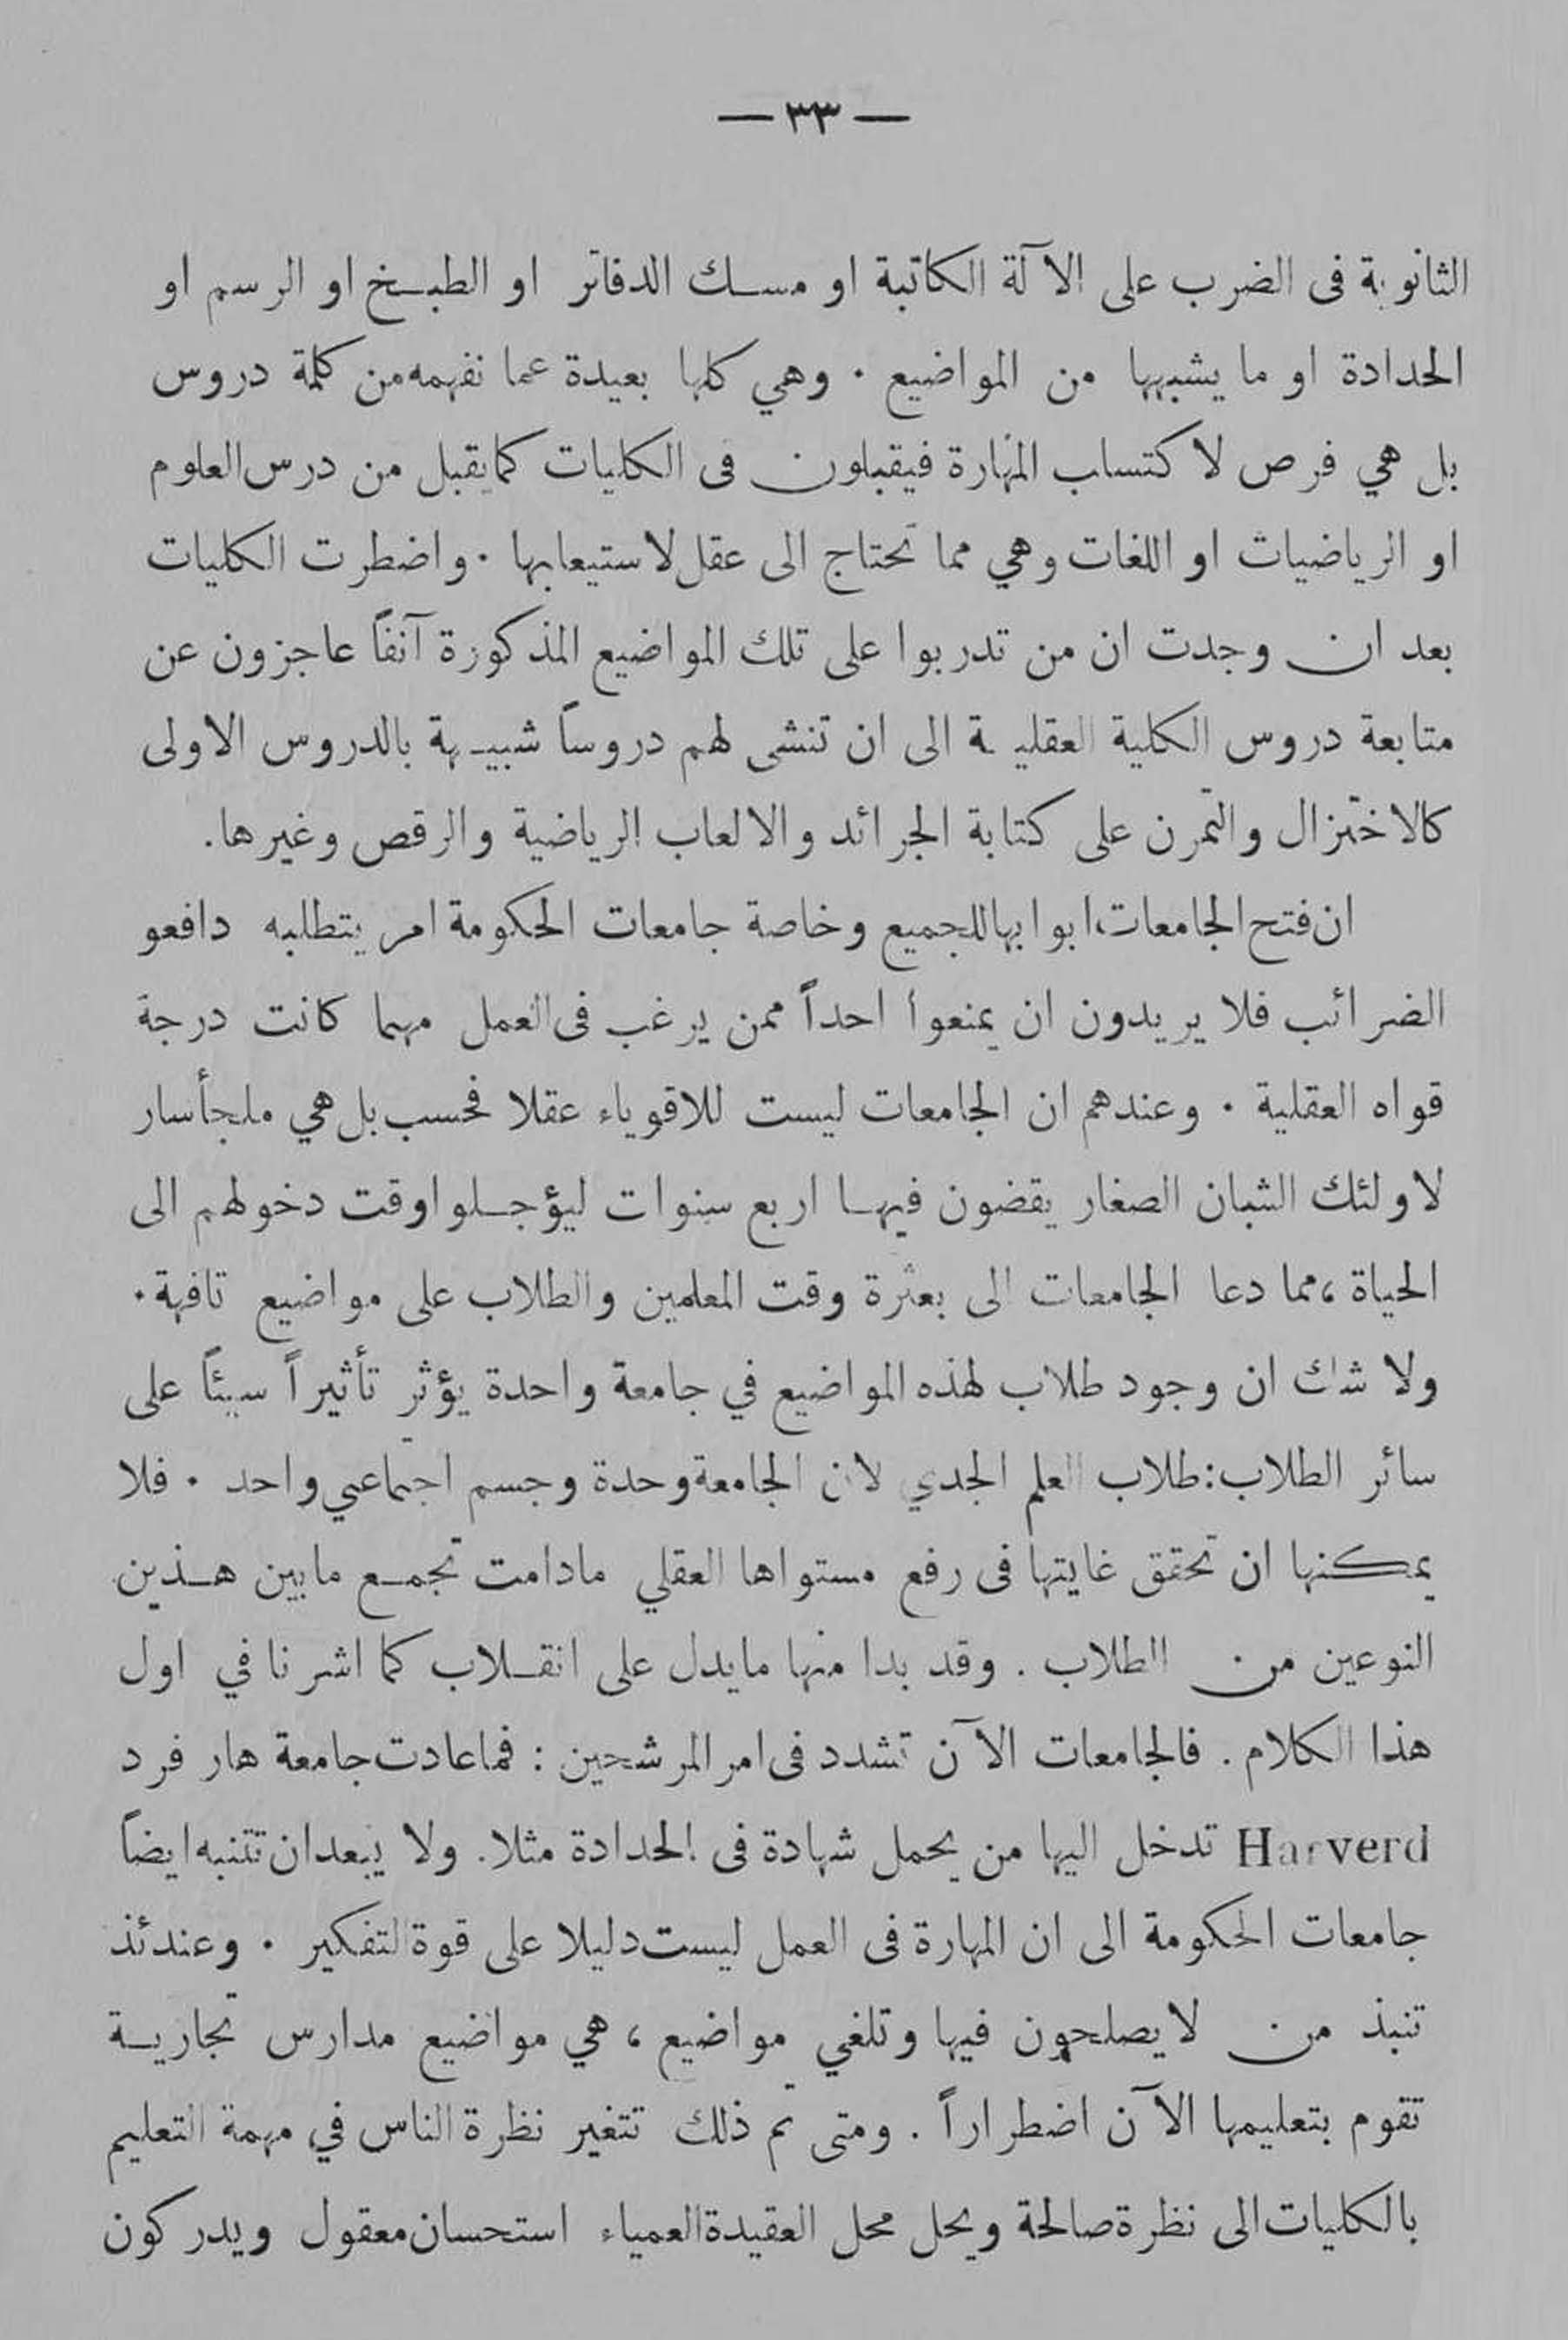 — ٣٣ —
الثانوية فى الضرب على الآلة الكاتبة او مسك الدفاتر او الطبخ او الرسم او
الحدادة او ما يشبهها من المواضيع . وهي كلها بعيدة عما نفهمه من كلمة دروس
بل هي فرص لاكتساب المهارة فيقبلون فى الكليات كما يقبل من درس العلوم
او الرياضيات او اللغات وهي مما تحتاج الى عقل لاستيعابها . واضطرت الكليات
بعد ان وجدت ان من تدربوا على تلك المواضيع المذكورة آنفاً عاجزون عن
متابعة دروس الكلية العقلية الى ان تنشى لهم دروساً شبيهة بالدروس الاولى
كالاختزال والتمرن على كتابة الجرائد والالعاب الرياضية والرقص وغيرها .
ان فتح الجامعات ابوابها للجميع وخاصة جامعات الحكومة امر يتطلبه دافعو
الضرائب فلا يريدون ان يمنعوا احداً ممن يرغب فى العمل مهما كانت درجة
قواه العقلية . وعندهم ان الجامعات ليست للاقوياء عقلا فحسب بل هي ملجأ سار
لاولئك الشبان الصغار يقضون فيها اربع سنوات ليؤجلوا وقت دخولهم الى
الحياة ، مما دعا الجامعات الى بعثرة وقت المعلمين والطلاب على مواضيع تافهة .
ولا شك ان وجود طلاب لهذه المواضيع في جامعة واحدة يؤثر تأثيراً سيئاً على
سائر الطلاب : طلاب العلم الجدي لان الجامعة وحدة وجسم اجتماعي واحد . فلا
يمكنها ان تحقق غايتها فى رفع مستواها العقلي مادامت تجمع مابين هذين
النوعين من الطلاب . وقد بدا منها مايدل على انقلاب كما اشرنا في اول
هذا الكلام . فالجامعات الآن تشدد فى امر المرشحين : فما عادت جامعة هارفرد
Harverd تدخل اليها من يحمل شهادة فى الحدادة مثلا . ولا يبعد ان تتنبه ايضاً
جامعات الحكومة الى ان المهارة فى العمل ليست دليلا على قوة التفكير . وعندئذ
تنبذ من لايصلحون فيها وتلغي مواضيع ، هي مواضيع مدارس تجارية
تقوم بتعليمها الآن اضطراراً . ومتى تم ذلك تتغير نظرة الناس في مهمة التعليم
بالكليات الى نظرة صالحة ويحل محل العقيدة العمياء استحسان معقول ويدركون